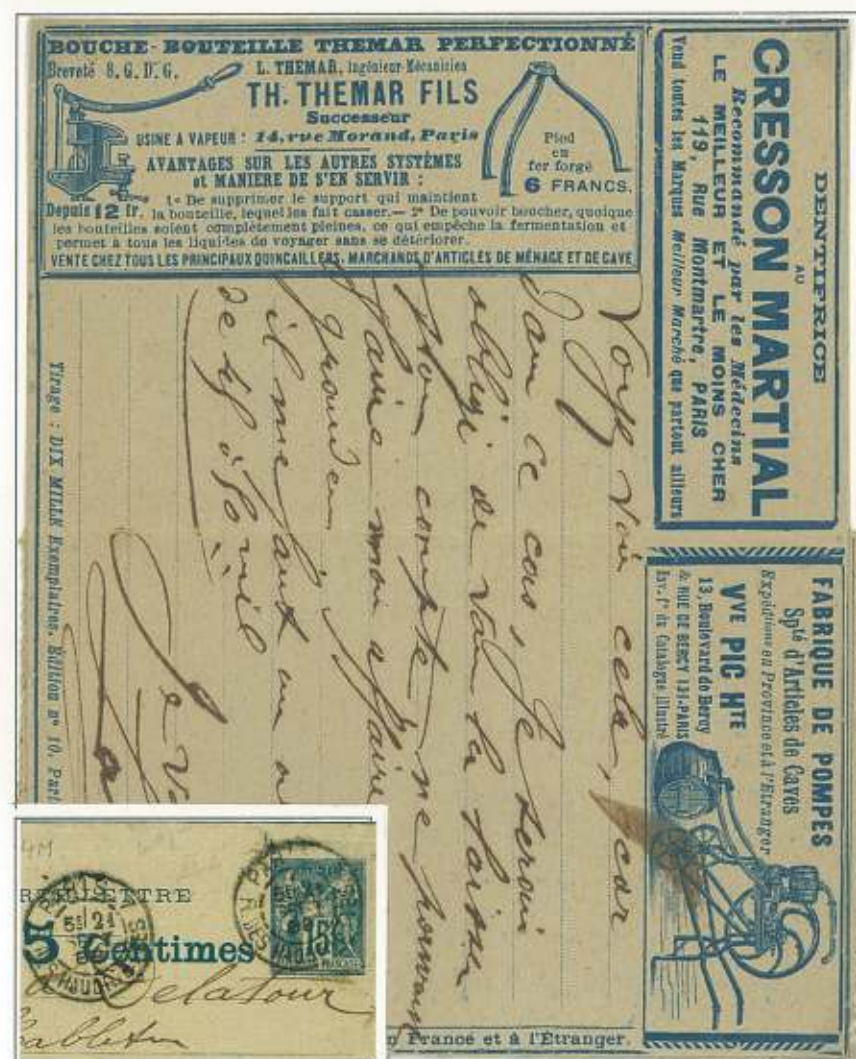 BOUCHE-BOUTEILLE THEMAR PERFECTIONNÉ
Breveté S.G.D.G.
L. THEMAR, Ingénieur-Mécanicien
TH. THEMAR FILS
Successeur
USINE A VAPEUR : 14, rue Morand, Paris
AVANTAGES SUR LES AUTRES SYSTÈMES
et MANIERE DE S'EN SERVIR :
Pied
en
fer forgé
6 FRANCS.
Depuis 12 fr.
1º De supprimer le support qui maintient
la bouteille, lequel les fait casser. — 2º De pouvoir boucher, quoique
les bouteilles soient complètement pleines, ce qui empêche la fermentation et
permet à tous les liquides de voyager sans se détériorer.
VENTE CHEZ TOUS LES PRINCIPAUX QUINCAILLERS, MARCHANDS D'ARTICLES DE MÉNAGE ET DE CAVE
DENTIFRICE
AU
CRESSON MARTIAL
Recommandé par les Médecins
LE MEILLEUR ET LE MOINS CHER
119, Rue Montmartre, PARIS
Vend toutes les Marques Meilleur Marché que partout ailleurs
FABRIQUE DE POMPES
Spté d'Articles de Caves
Expéditions en Province et à l'Etranger
VVE PIC HTE
13, Boulevard de Bercy
& RUE DE BERCY 131-PARIS
Env. fº du Catalogue illustré
Voyez voir cela, car
dans ce cas, je serais
obligé de vous la laisser
pour compte, ne pouvant
faire mon affaire
il me faut un
Tirage : DIX MILLE Exemplaires. Édition nº 10, Part
n France et à l'Étranger.
LETTRE
5 Centimes
15
PARIS
PARIS
Delatour